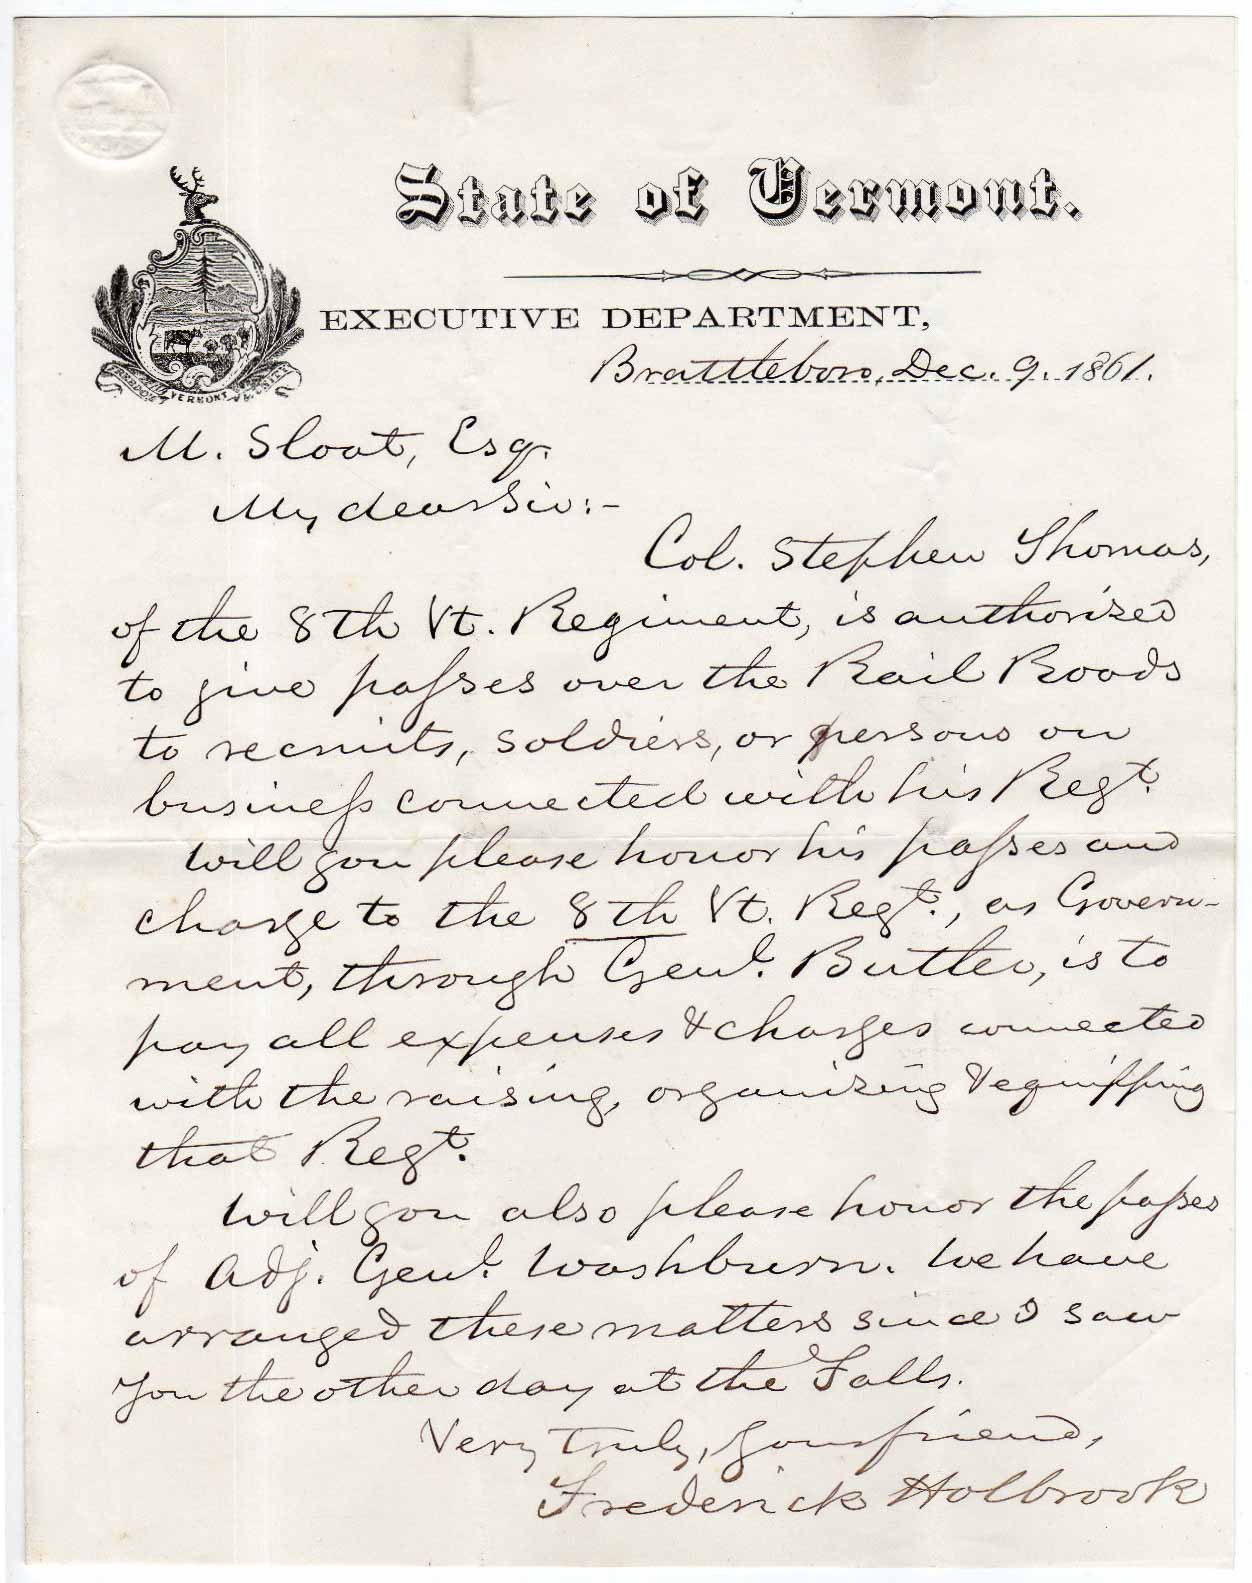 State of Vermont.
EXECUTIVE DEPARTMENT,
VERMONT
Brattleboro, Dec. 9. 1861.
M. Sloat, Esq.
My dear Sir:-
Col. Stephen Thomas,
of the 8th Vt. Regiment, is authorized
to give paſses over the Rail Roads
to recruits, soldiers, or persons on
busineſs connected with his Regt.
Will you please honor his paſses and
charge to the 8th Vt. Regt., as Govern-
ment, through Genl. Butler, is to
pay all expenses & charges connected
with the raising, organizing & equipping
that Regt.
Will you also please honor the paſses
of Adj. Genl. Washburn. We have
arranged these matters since I saw
you the other day at the Falls.
Very truly, your friend,
Frederick Holbrook